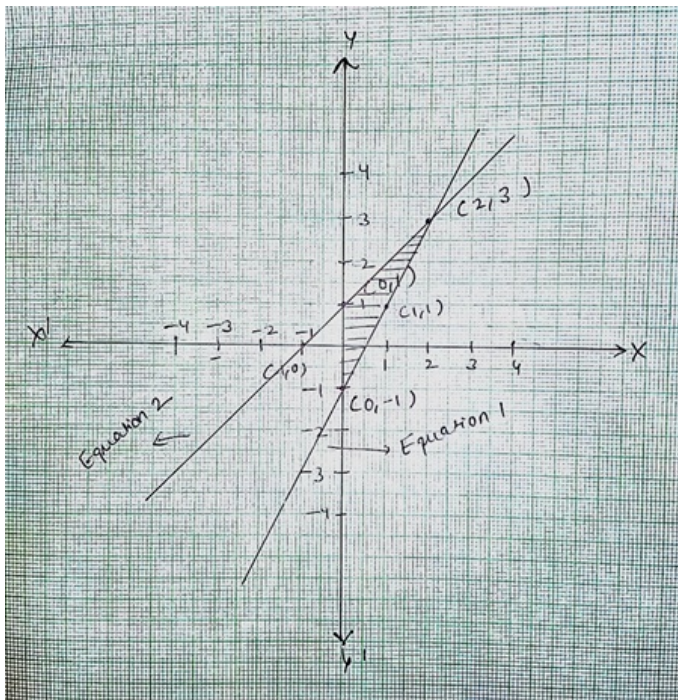 Y
4
3
(2,3)
2
(0,1)
1
(1,1)
X'
-4 -3 -2 -1
1 2 3 4
X
-1
(0,-1)
Equation 2
-2
Equation 1
-3
-4
Y'